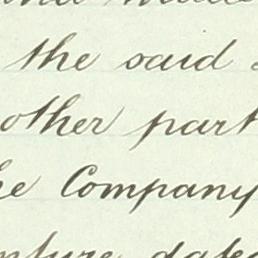 the said
other part
he Company
dated